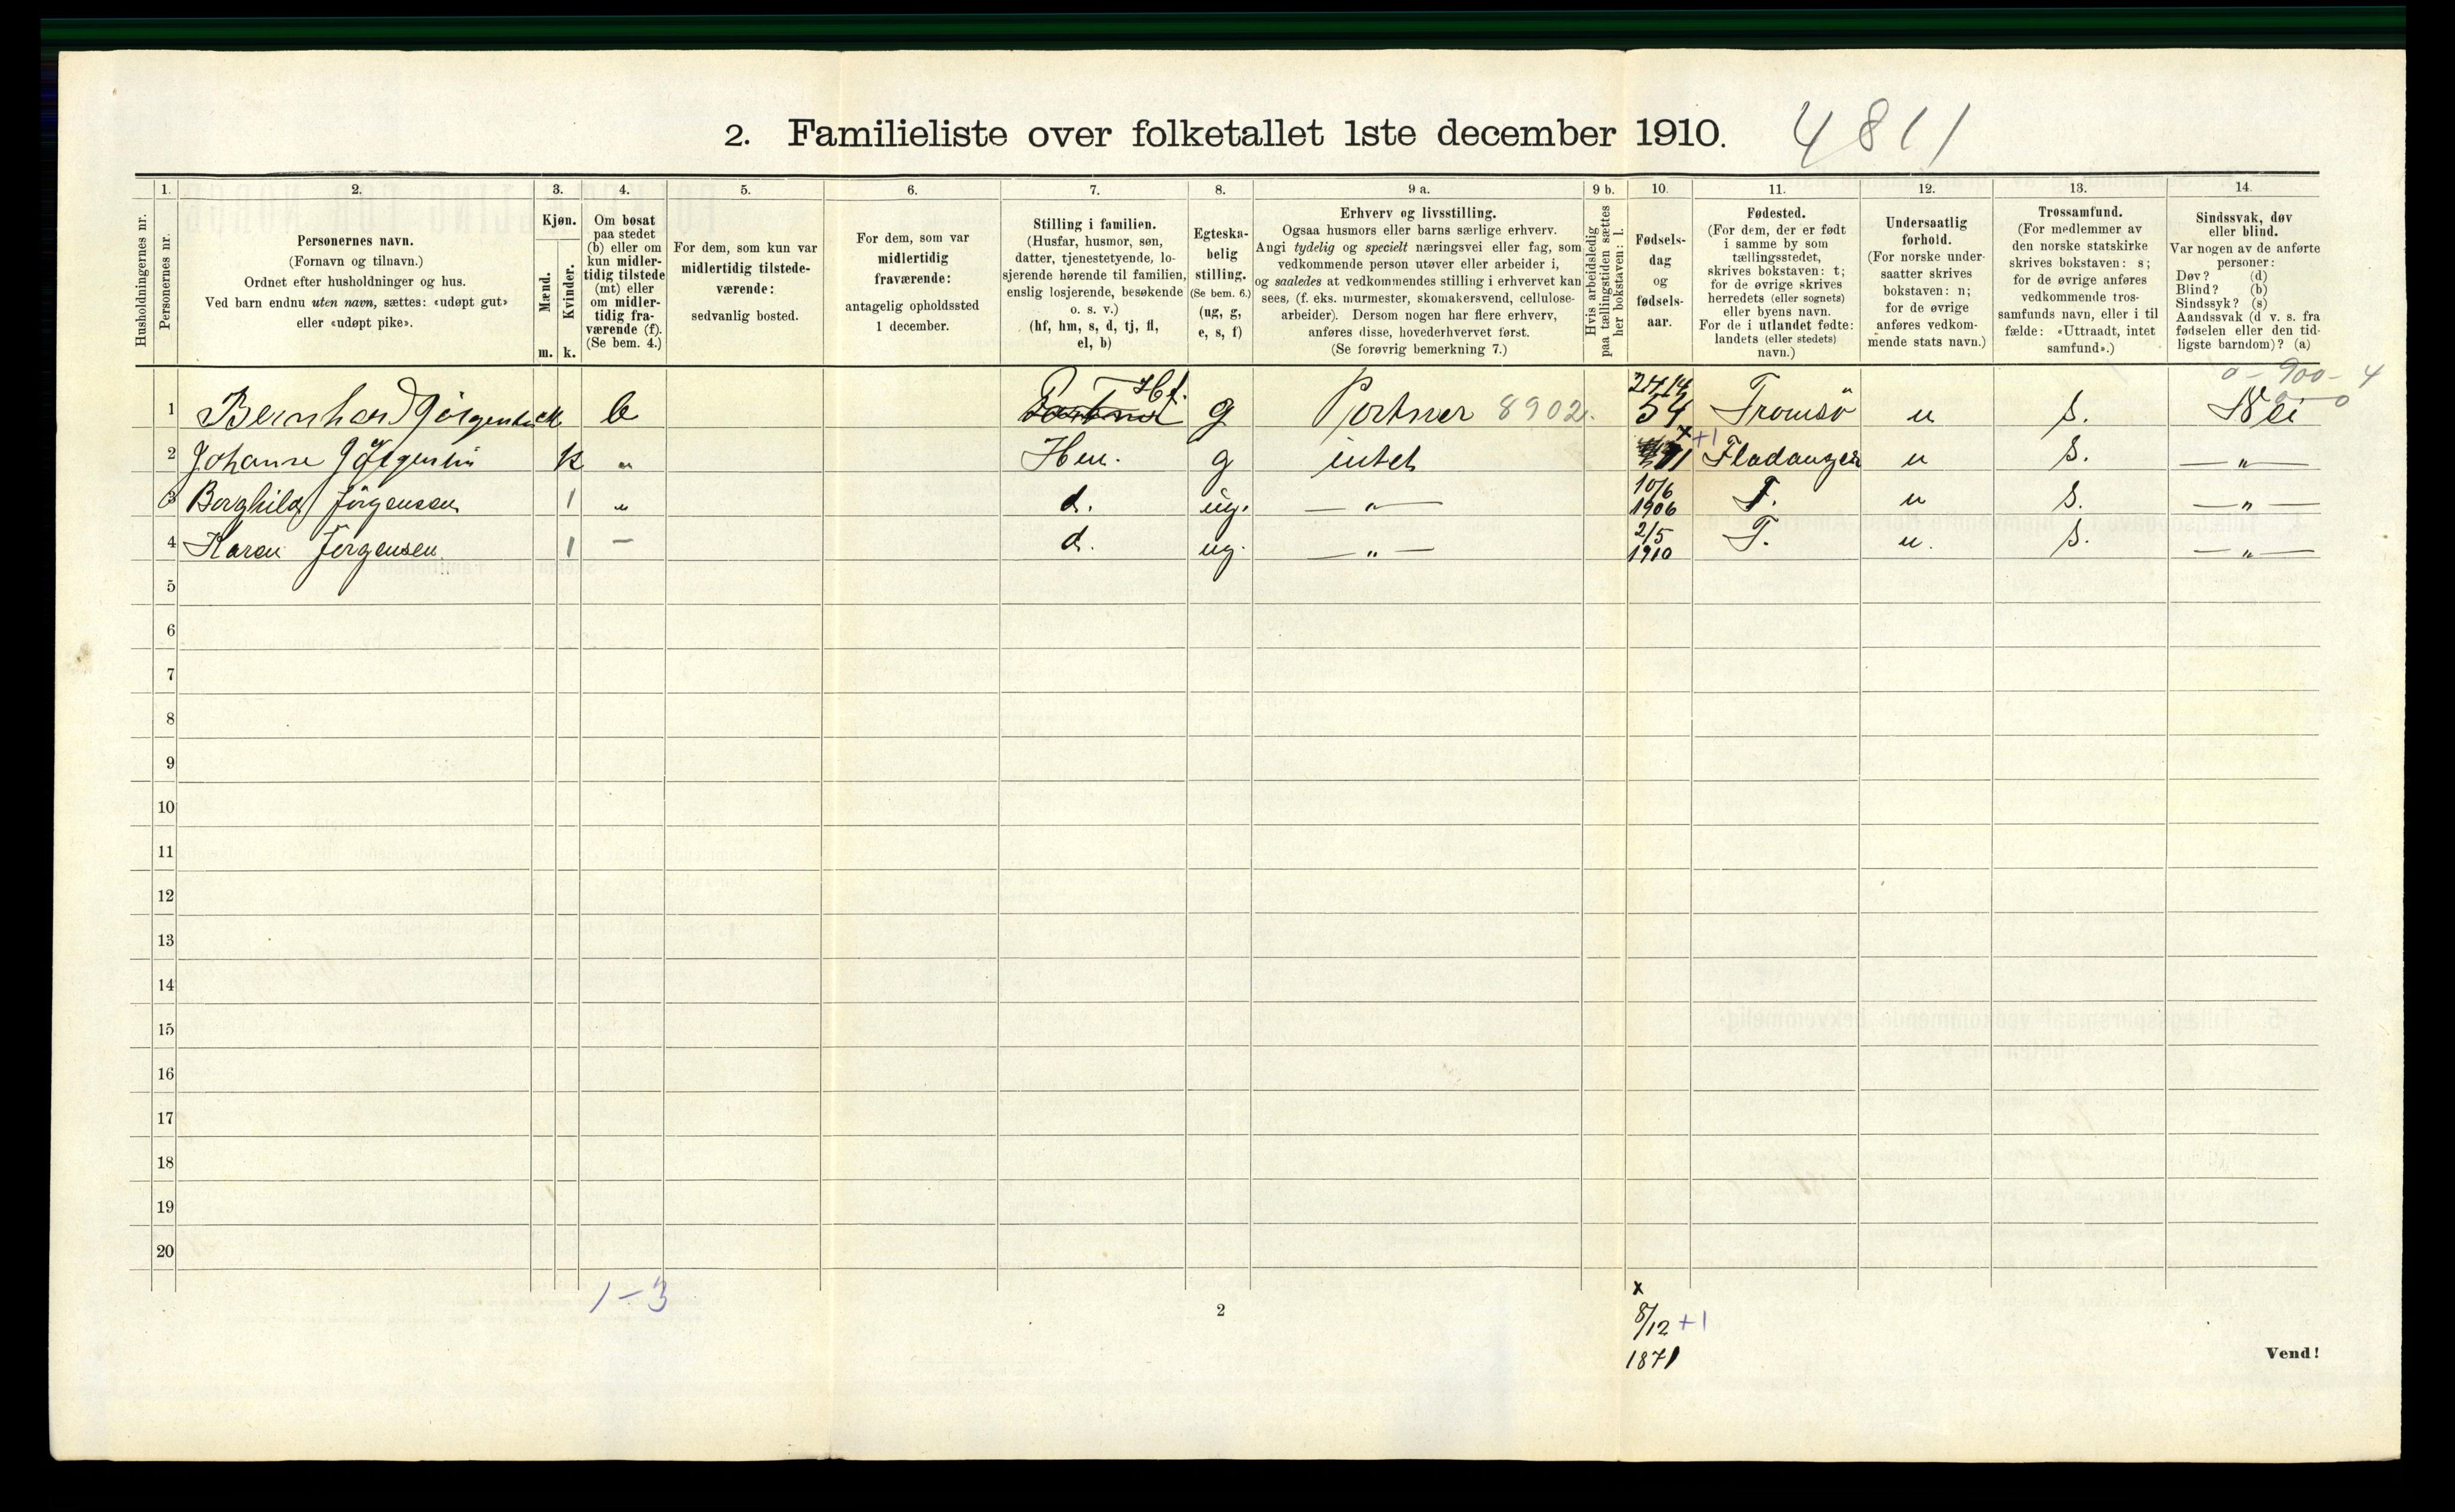 2. Familieliste over folketallet 1ste december 1910. 4811
Husholdningernes nr.
1.
Personernes nr.
2.
Personernes navn.
(Fornavn og tilnavn.)
Ordnet efter husholdninger og hus.
Ved barn endnu uten navn, sættes: «udøpt gut»
eller «udøpt pike».
3.
Kjøn.
Mænd.
Kvinder.
m. k.
4.
Om bosat
paa stedet
(b) eller om
kun midler-
tidig tilstede
(mt) eller
om midler-
tidig fra-
værende (f).
(Se bem. 4.)
5.
For dem, som kun var
midlertidig tilstede-
værende:
sedvanlig bosted.
6.
For dem, som var
midlertidig
fraværende:
antagelig opholdssted
1 december.
7.
Stilling i familien.
(Husfar, husmor, søn,
datter, tjenestetyende, lo-
sjerende hørende til familien,
enslig losjerende, besøkende
o. s. v.)
(hf, hm, s, d, tj, fl,
el, b)
8.
Egteska-
belig
stilling.
(Se bem. 6.)
(ug, g,
e, s, f)
9 a.
Erhverv og livsstilling.
Ogsaa husmors eller barns særlige erhverv.
Angi tydelig og specielt næringsvei eller fag, som
vedkommende person utøver eller arbeider i,
og saaledes at vedkommendes stilling i erhvervet kan
sees, (f. eks. murmester, skomakersvend, cellulose-
arbeider). Dersom nogen har flere erhverv,
anføres disse, hovederhvervet først.
(Se forøvrig bemerkning 7.)
9 b.
Hvis arbeidsledig
paa tællingstiden sættes
her bokstaven: l.
10.
Fødsels-
dag
og
fødsels-
aar.
11.
Fødested.
(For dem, der er født
i samme by som
tællingsstedet,
skrives bokstaven: t;
for de øvrige skrives
herredets (eller sognets)
eller byens navn.
For de i utlandet fødte:
landets (eller stedets)
navn.)
12.
Undersaatlig
forhold.
(For norske under-
saatter skrives
bokstaven: n;
for de øvrige
anføres vedkom-
mende stats navn.)
13.
Trossamfund.
(For medlemmer av
den norske statskirke
skrives bokstaven: s;
for de øvrige anføres
vedkommende tros-
samfunds navn, eller i til
fælde: «Uttraadt, intet
samfund».)
14.
Sindssvak, døv
eller blind.
Var nogen av de anførte
personer:
Døv? (d)
Blind? (b)
Sindssyk? (s)
Aandssvak (d v. s. fra
fødselen eller den tid-
ligste barndom)? (a)
0 - 900 - 4
0 - 0
1 Bernhard Jörgensen M b Hf. g Portner 8902. 54 Tromsö n s. Nei
2 Johanne Jörgensen K " Hm. g intet x +1 71 Fladanger n s. — " —
3 Borghild Jörgensen 1 " d. ug. — " — 10/6 1906 T. n s. — " —
4 Karen Jörgensen 1 — d. ug. — " — 2/5 1910 T. n. s. — " —
5
6
7
8
9
10
11
12
13
14
15
16
17
18
19
20
1 - 3
2
x
8/12 +1
1871
Vend!